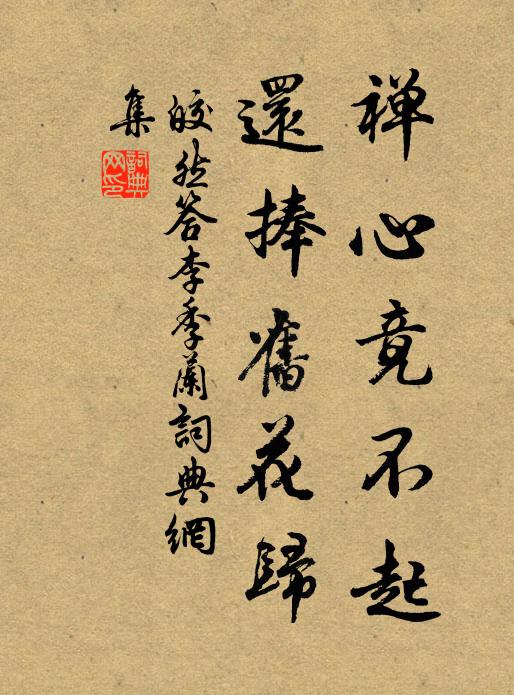 禅心竟不起
還捧舊花歸
皎然答李季蘭詞典網
集
詞典
网印